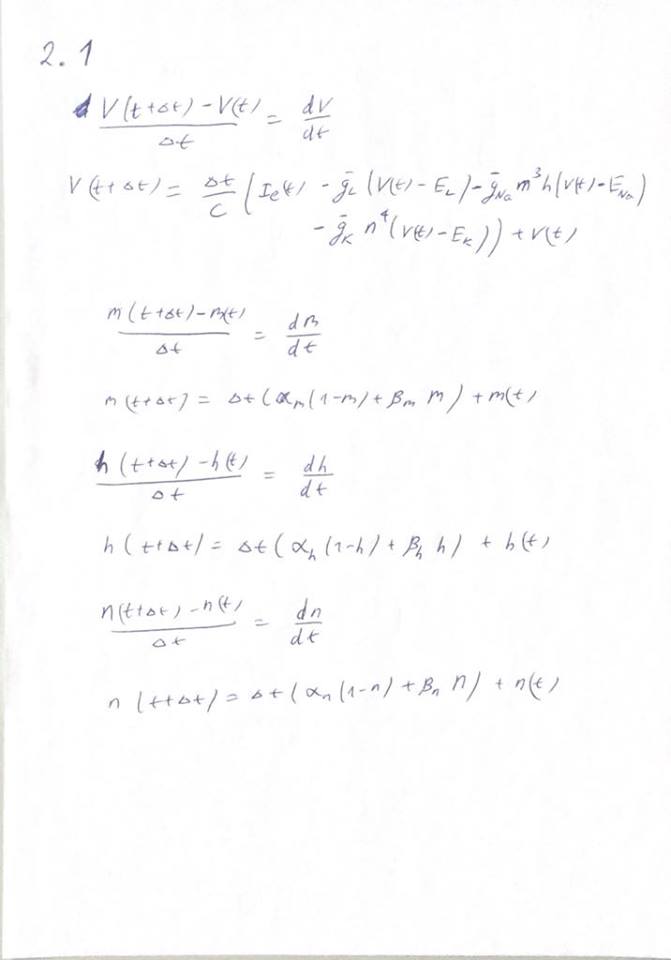 2.1
(V(t+Δt) - V(t))/Δt = dV/dt
V(t+Δt) = Δt/C (Ie(t) - ḡL (V(t) - EL) - ḡNa m³h (V(t) - ENa)
- ḡK n⁴ (V(t) - EK)) + V(t)
(m(t+Δt) - m(t))/Δt = dm/dt
m(t+Δt) = Δt(αm(1-m) + βm m) + m(t)
(h(t+Δt) - h(t))/Δt = dh/dt
h(t+Δt) = Δt(αh(1-h) + βh h) + h(t)
(n(t+Δt) - n(t))/Δt = dn/dt
n(t+Δt) = Δt(αn(1-n) + βn n) + n(t)